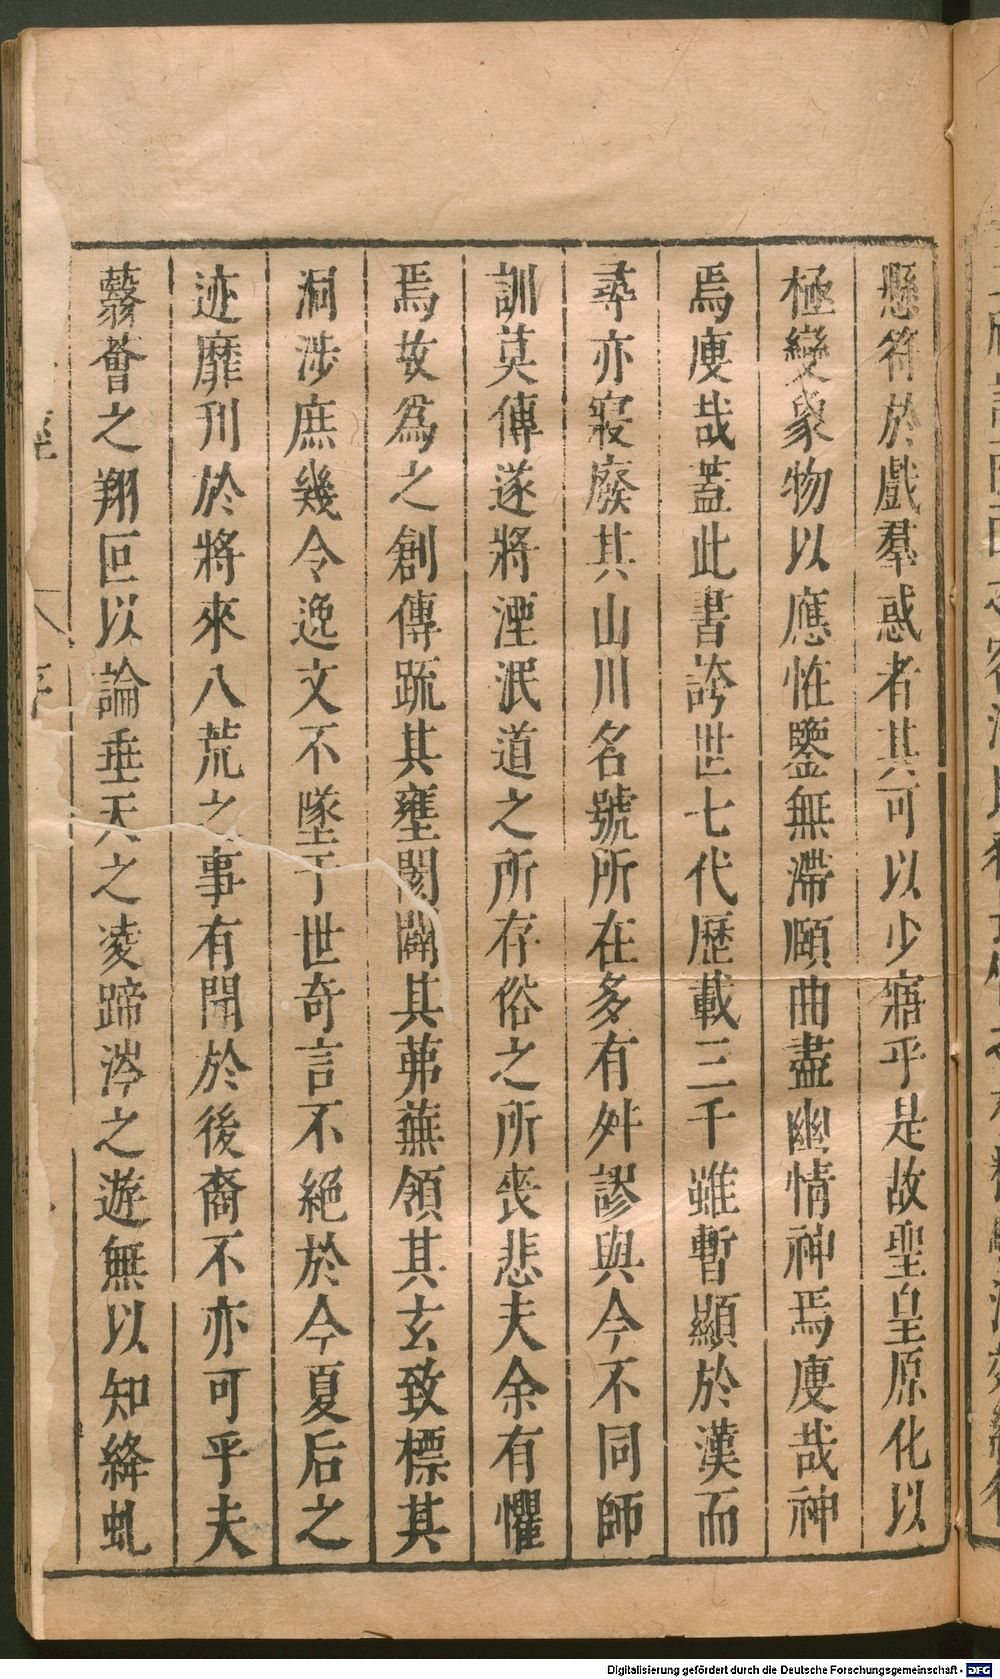 懸符於戲羣惑者其可以少寤乎是故聖皇原化以
極變象物以應恠鑒無滯賾曲盡幽情神焉廋哉神
焉廋哉蓋此書跨世七代歷載三千雖暫顯於漢而
尋亦寢廢其山川名號所在多有舛謬與今不同師
訓莫傳遂將湮泯道之所存俗之所喪悲夫余有懼
焉故爲之創傳疏其壅閡闢其茀蕪領其玄致標其
洞涉庶幾令逸文不墜于世奇言不絕於今夏后之
迹靡刊於將來八荒之事有聞於後裔不亦可乎夫
蘙薈之翔叵以論垂天之凌蹄涔之遊無以知絳虬
Digitalisierung gefördert durch die Deutsche Forschungsgemeinschaft - DFG